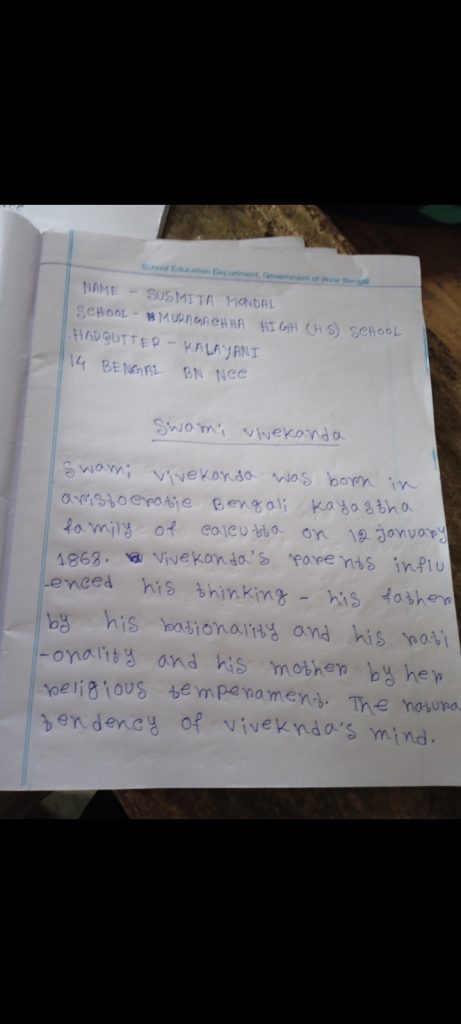 School Education Department, Government of West Bengal
NAME - SUSMITA MONDAL
SCHOOL - MURAGACHHA HIGH (HS) SCHOOL
HADQUTTER - KALAYANI
14 BENGAL BN NCC
Swami vivekanda
Swami vivekanda was born in
aristocratie Bengali kayastha
family of calcutta on 12 january
1863. vivekanda's parents influ
-enced his thinking - his father
by his rationality and his rati
-onality and his mother by her
religious temperament. The natura
tendency of viveknda's mind.